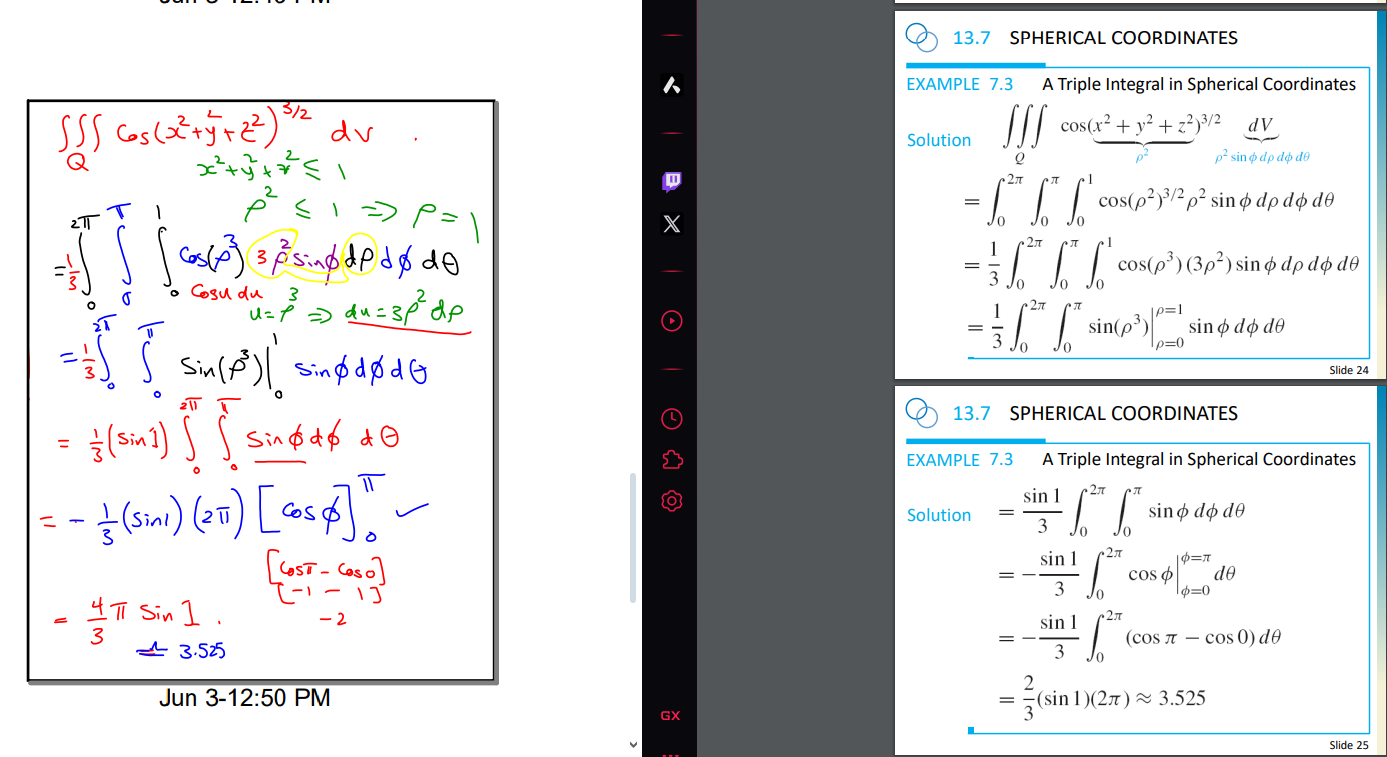 ∭_Q Cos(x²+y²+z²)^{3/2} dv .
x²+y²+z² ≤ 1
ρ² ≤ 1 ⇒ ρ = 1
= 1/3 ∫_0^{2π} ∫_0^π ∫_0^1 Cos(ρ³) 3ρ² sinφ dρ dφ dθ
Cosu du
u = ρ³ ⇒ du = 3ρ² dρ
= 1/3 ∫_0^{2π} ∫_0^π Sin(ρ³)|_0^1 sinφ dφ dθ
= 1/3 (sin1) ∫_0^{2π} ∫_0^π Sinφ dφ dθ
= - 1/3 (sin1) (2π) [Cosφ]_0^π ✓
[Cosπ - Cos0]
[-1 - 1]
-2
= 4/3 π Sin1 .
≐ 3.525
Jun 3-12:50 PM
GX
13.7 SPHERICAL COORDINATES
EXAMPLE 7.3 A Triple Integral in Spherical Coordinates
Solution ∭_Q cos(x² + y² + z²)^{3/2} dV
ρ² ρ² sin φ dρ dφ dθ
= ∫_0^{2π} ∫_0^π ∫_0^1 cos(ρ²)^{3/2} ρ² sin φ dρ dφ dθ
= 1/3 ∫_0^{2π} ∫_0^π ∫_0^1 cos(ρ³) (3ρ²) sin φ dρ dφ dθ
= 1/3 ∫_0^{2π} ∫_0^π sin(ρ³)|_{ρ=0}^{ρ=1} sin φ dφ dθ
Slide 24
13.7 SPHERICAL COORDINATES
EXAMPLE 7.3 A Triple Integral in Spherical Coordinates
Solution = sin 1/3 ∫_0^{2π} ∫_0^π sin φ dφ dθ
= − sin 1/3 ∫_0^{2π} cos φ|_{φ=0}^{φ=π} dθ
= − sin 1/3 ∫_0^{2π} (cos π − cos 0) dθ
= 2/3 (sin 1)(2π) ≈ 3.525
Slide 25